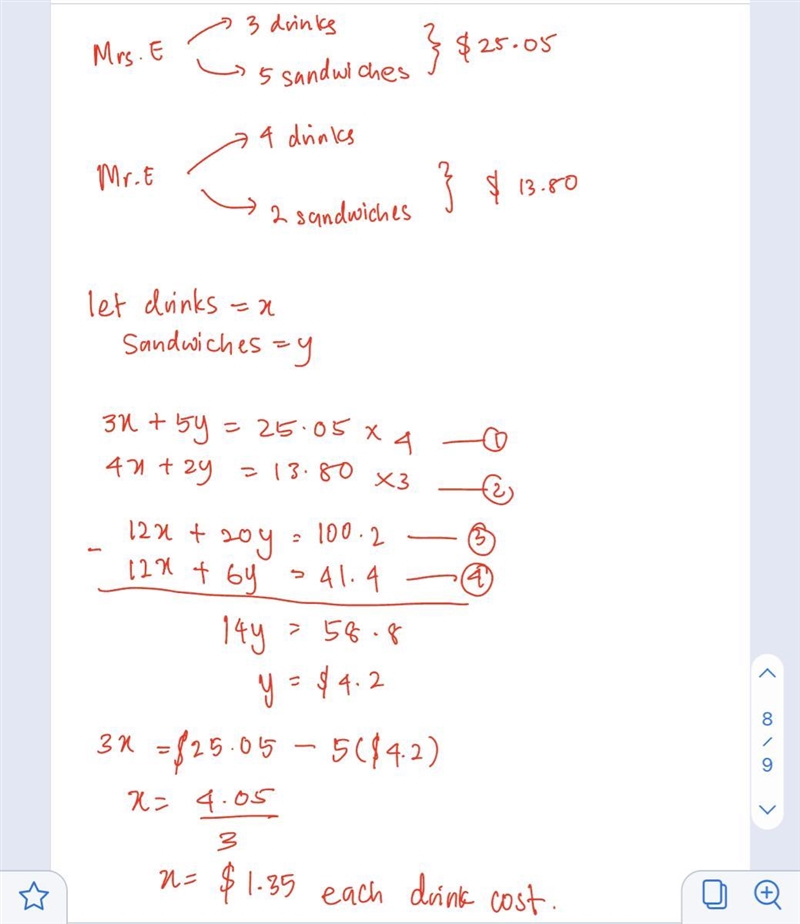 3 drinks
Mrs. E } $25.05
5 sandwiches
4 drinks
Mr. E } $ 13.80
2 sandwiches
let drinks = x
Sandwiches = y
3x + 5y = 25.05 x 4 — ①
4x + 2y = 13.80 x3 — ②
- 12x + 20y = 100.2 — ③
12x + 6y = 41.4 — ④
14y = 58.8
y = $4.2
3x = $25.05 - 5($4.2)
x = 4.05
3
x = $1.35 each drink cost.
8
/
9